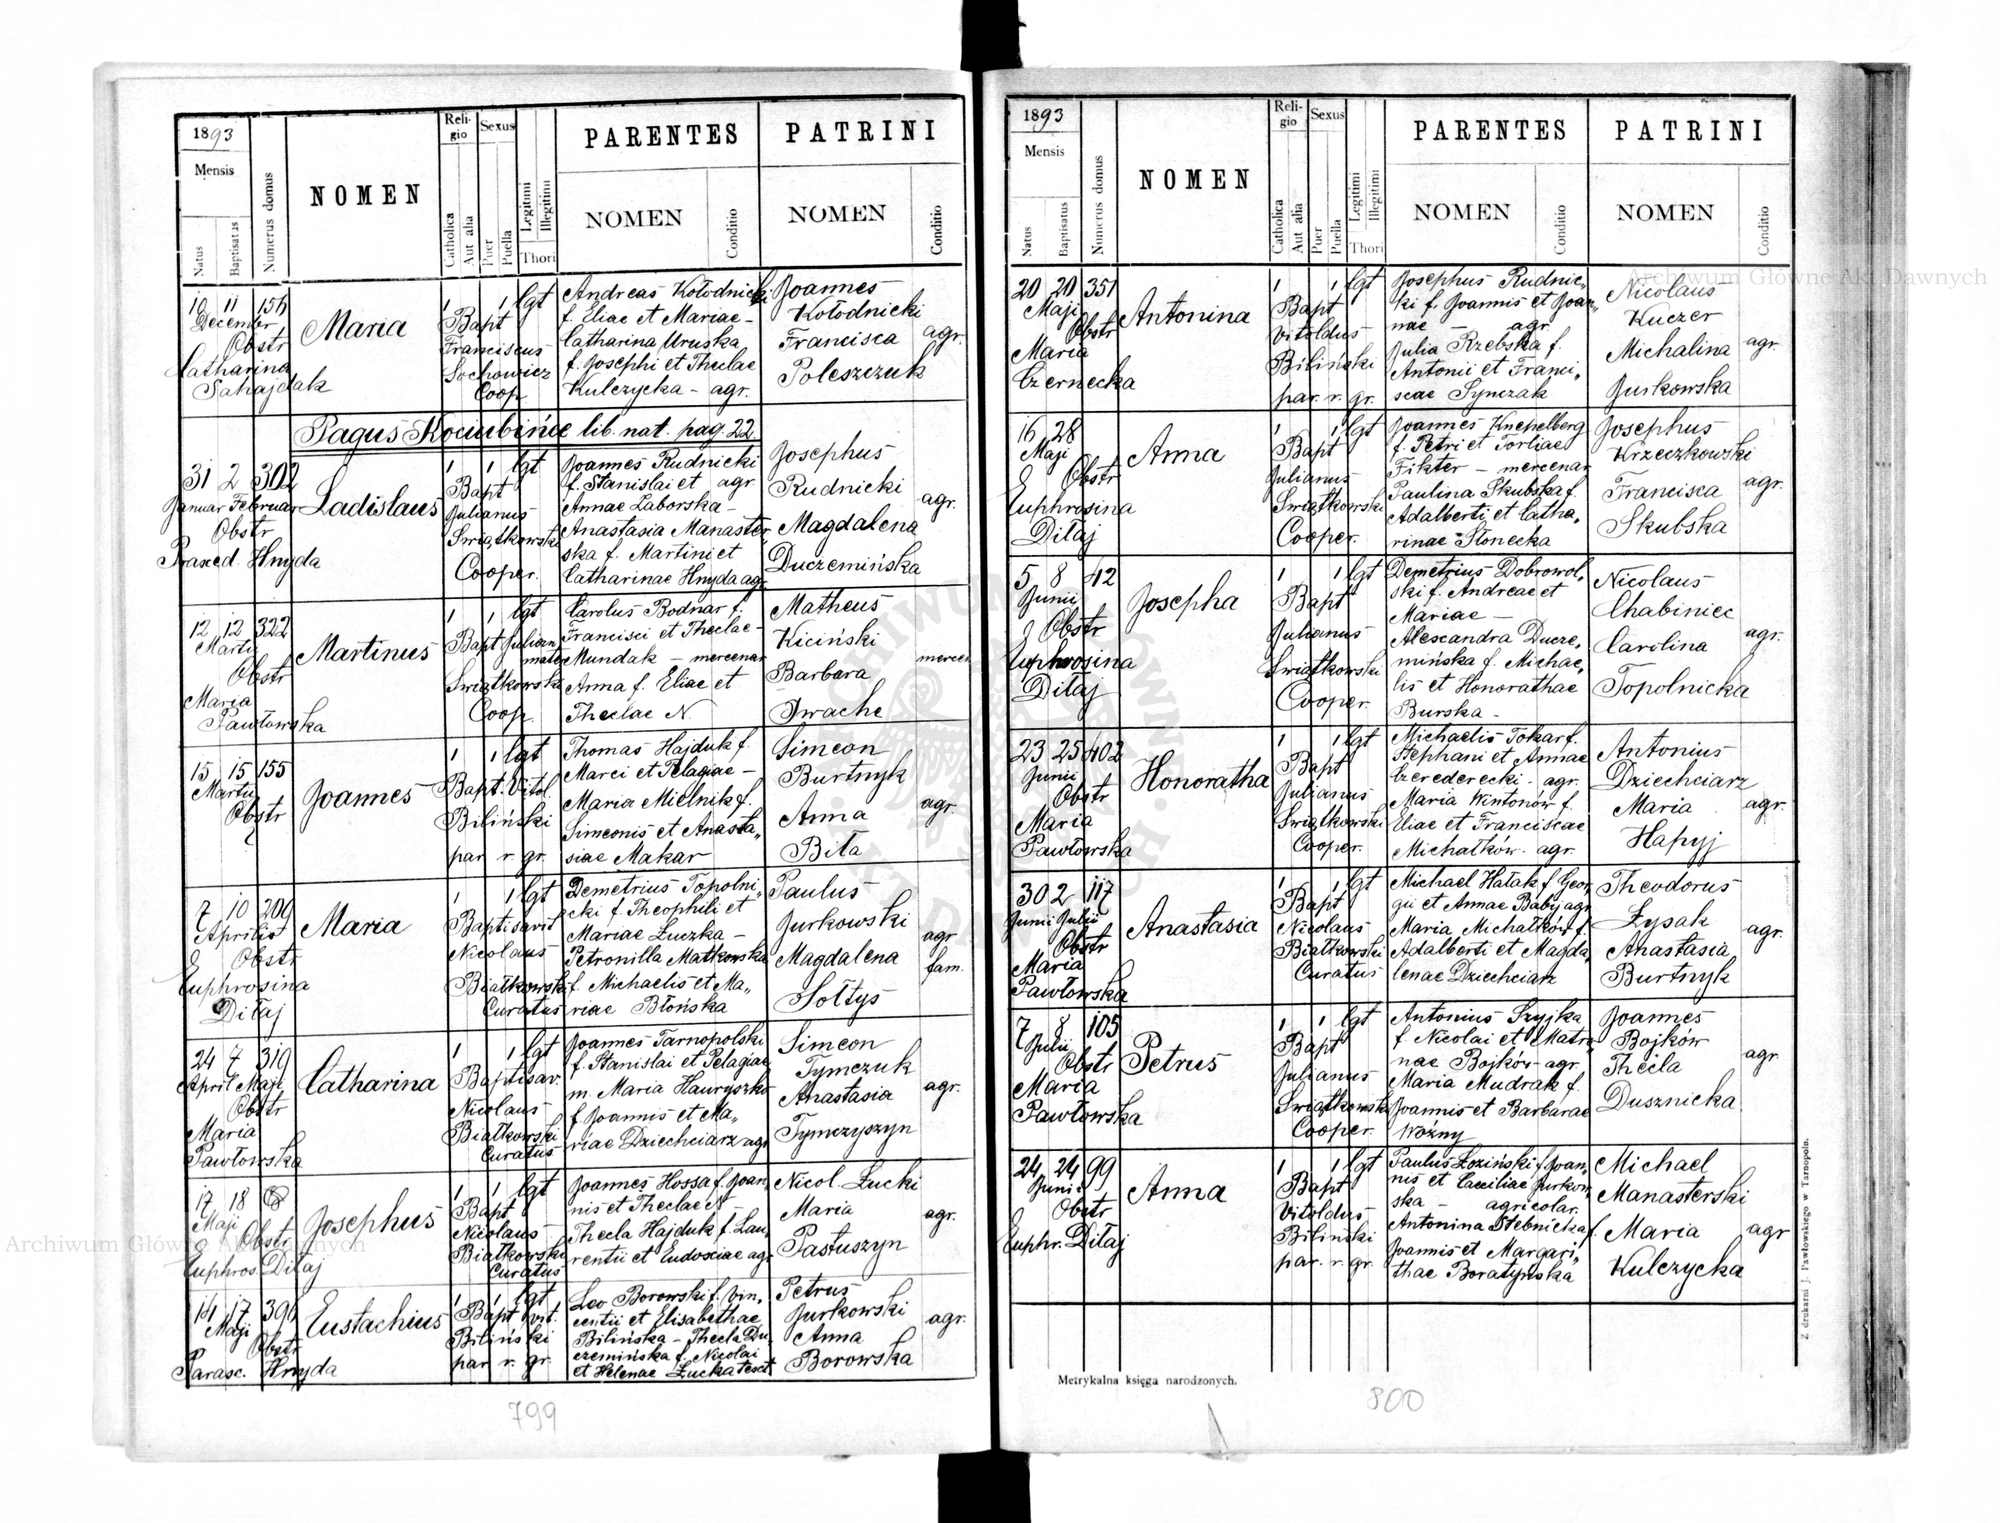 1893
Mensis
Natus
Baptisatus
Numerus domus
NOMEN
Religio
Catholica
Aut alia
Sexus
Puer
Puella
Legitimi
Illegitimi
Thori
PARENTES
NOMEN
Conditio
PATRINI
NOMEN
Conditio
10 11 156
December
Obstr
Catharina
Sahajdak
Maria
1 1 lgt
Bapt
Franciscus
Sochowicz
Coop
Andreas Kołodnicki
f. Eliae et Mariae –
Catharina Uruska
f. Josephi et Theclae
Kulczycka – agr.
Joannes
Kołodnicki
Francisca
Poleszczuk
agr.
Pagus Kociubińce lib. nat. pag. 22
31 2 302
Januar Februar
Obstr
Praxed. Hnyda
Ladislaus
1 1 lgt
Bapt
Julianus
Swiątkowski
Cooper.
Joannes Rudnicki
f. Stanislai et agr
Annae Laborska –
Anastasia Manaster„
ska f. Martini et
Catharinae Hnyda agr
Josephus
Rudnicki
Magdalena
Duczemińska
agr.
12 12 322
Martii
Obstr
Maria
Pawłowska
Martinus
1 1 lgt
Bapt Julian
Swiątkowski
Coop.
Carolus Bodnar f.
Francisci et Theclae –
Mundak – mercenar
Anna f. Eliae et
Theclae N.
Matheus
Kiciński
Barbara
Iwache
mercen
15 15 155
Martii
Obstr
Joannes
1 1 lgt
Bapt. Vitol.
Biliński
par r. gr.
Thomas Hajduk f.
Marci et Pelagiae –
Maria Mielnik f.
Simeonis et Anasta„
siae Makar
Simeon
Burtnyk
Anna
Biła
agr.
7 10 209
Aprilis
Obstr
Euphrosina
Diłaj
Maria
1 1 lgt
Baptisavit
Nicolaus
Białkowski
Curatus
Demetrius Topolni„
cki f. Theophili et
Mariae Łuczka –
Petronilla Matkowska
f. Michaelis et Ma„
riae Błońska
Paulus
Jurkowski
Magdalena
Sołtys
agr
fam.
24 7 319
April Maji
Obstr
Maria
Pawłowska
Catharina
1 1 lgt
Baptisav.
Nicolaus
Białkowski
Curatus
Joannes Tarnopolski
f. Stanislai et Pelagiae
m. Maria Hawryszko
f. Joannis et Ma„
riae Dziechciarz agr
Simeon
Tymczuk
Anastasia
Tymczyszyn
agr.
17 18
Maji
Obstr
Euphros. Diłaj
Josephus
1 1 lgt
Bapt
Nicolaus
Białkowski
Curatus
Joannes Hossa f. Joan„
nis et Theclae N
Thecla Hajduk f. Lau„
rentii et Eudosiae agr
Nicol. Łucki
Maria
Pastuszyn
agr.
14 17 396
Maji
Obstr
Parasc. Hnyda
Eustachius
1 1 lgt
Bapt Vit.
Biliński
par r. gr.
Leo Borowski f. Vin„
centii et Elisabethae
Bilińska – Thecla Du„
czemińska f. Nicolai
et Helenae Łucka
Petrus
Jurkowski
Anna
Borowska
agr.
799
1893
Mensis
Natus
Baptisatus
Numerus domus
NOMEN
Religio
Catholica
Aut alia
Sexus
Puer
Puella
Legitimi
Illegitimi
Thori
PARENTES
NOMEN
Conditio
PATRINI
NOMEN
Conditio
20 20 351
Maji
Obstr
Maria
Czernecka
Antonina
1 1 lgt
Bapt
Vitoldus
Biliński
par. r. gr.
Josephus Rudnic„
ki f. Joannis et Joan„
nae – agr.
Julia Rzebska f.
Antonii et Franci„
scae Symczak
Nicolaus
Kuczer
Michalina
Jurkowska
agr.
16 28
Maji
Obstr
Euphrosina
Diłaj
Anna
1 1 lgt
Bapt
Julianus
Swiątkowski
Cooper.
Joannes Knepelberg
f. Petri et Torliae
Fikter – mercenar
Paulina Skubska f.
Adalberti et Catha„
rinae Słonecka
Josephus
Krzeczkowski
Francisca
Skubska
agr.
5 8 42
Junii
Obstr
Euphrosina
Diłaj
Josepha
1 1 lgt
Bapt
Julianus
Swiątkowski
Cooper.
Demetrius Dobrowol„
ski f. Andreae et
Mariae –
Alexandra Ducze„
mińska f. Michae„
lis et Honorathae
Burska –
Nicolaus
Chabiniec
Carolina
Topolnicka
agr.
23 25 402
Junii
Obstr
Maria
Pawłowska
Honoratha
1 1 lgt
Bapt
Julianus
Swiątkowski
Cooper.
Michaelis Tokar f.
Stephani et Annae
Czerederecki – agr.
Maria Wintonów f.
Eliae et Franciscae
Michałków – agr.
Antonius
Dziechciarz
Maria
Hapyj
agr.
30 2 117
Junii Julii
Obstr
Maria
Pawłowska
Anastasia
1 1 lgt
Bapt
Nicolaus
Białkowski
Curatus
Michael Hałak f. Geor„
gii et Annae Babij agr
Maria Michałków f.
Adalberti et Magda„
lenae Dziechciarz
Theodorus
Łysak
Anastasia
Burtnyk
agr.
7 8 105
Julii
Obstr
Maria
Pawłowska
Petrus
1 1 lgt
Bapt
Julianus
Swiątkowski
Cooper.
Antonius Szyjka
f. Nicolai et Matro„
nae Bojków – agr.
Maria Mudrak f.
Joannis et Barbarae
Woźny
Joannes
Bojków
Thecla
Dusznicka
agr
24 24 99
Junii
Obstr
Euphr. Diłaj
Anna
1 1 lgt
Bapt
Vitoldus
Biliński
par. r. gr.
Paulus Łoziński f. Joan„
nis et Caeciliae Jurkow„
ska – agricolar.
Antonina Stebnicka f.
Joannis et Margari„
thae Boratyńska
Michael
Manasterski
Maria
Kulczycka
agr
Metrykalna księga narodzonych.
Z drukarni J. Pawłowskiego w Tarnopolu.
800
Archiwum Główne Akt Dawnych
Archiwum Główne Akt Dawnych
ARCHIWUM GŁÓWNE AKT DAWNYCH